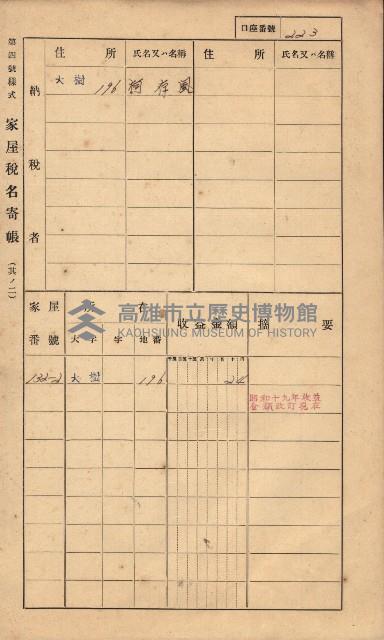 口座番號 223
第四號樣式 家屋稅名寄帳 (其ノ二)
納稅者
住所 氏名又ハ名稱 住所 氏名又ハ名稱
大樹 196
高雄市立歷史博物館
KAOHSIUNG MUSEUM OF HISTORY
家屋番號 所在 收益金額 摘要
大字 字 地番
132-2 大樹 196 24
昭和十九年收益
金額改訂現在